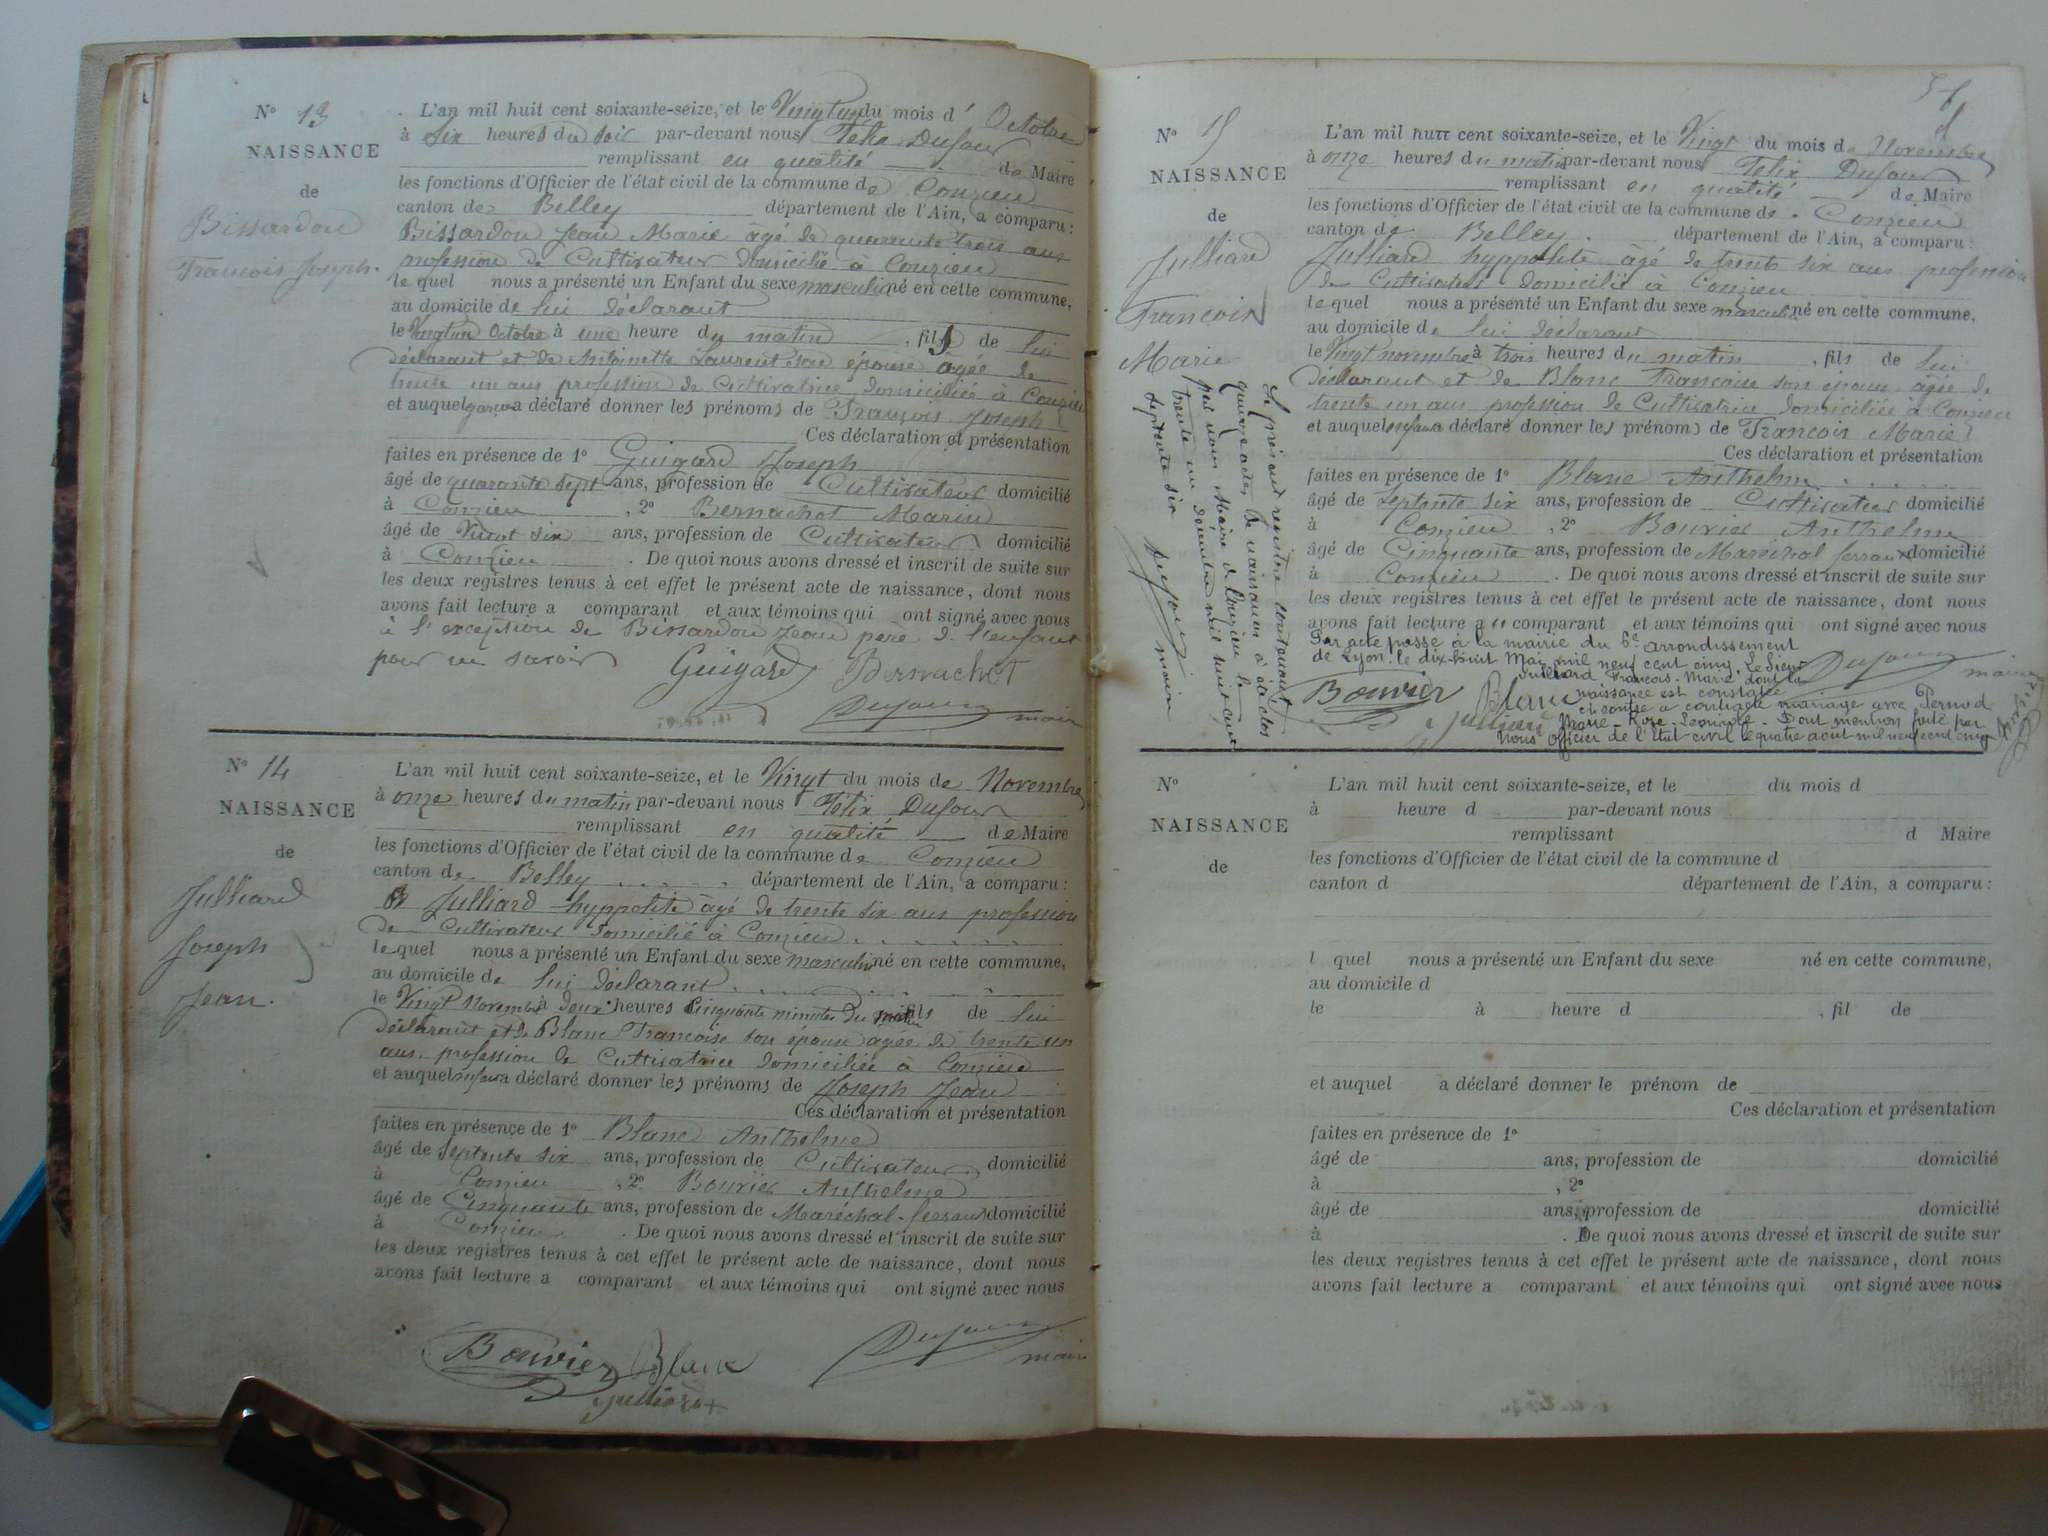 N° 13
NAISSANCE
de
Bissardon
François Joseph.
L'an mil huit cent soixante-seize, et le Vingt un du mois d' Octobre
à Six heures du soir par-devant nous Félix Dufour
remplissant en qualité de Maire
les fonctions d'Officier de l'état civil de la commune de Conzieu
canton de Belley département de l'Ain, a comparu :
Bissardon Jean Marie agé de quarante trois ans
profession de Cultivateur domicilié à Conzieu
lequel nous a présenté un Enfant du sexe masculin né en cette commune,
au domicile de lui déclarant
le Vingt un Octobre à une heure du matin, fils de lui
déclarant et de Antoinette Laurent son épouse agée de
trente un ans profession de Cultivatrice domiciliée à Conzieu
et auquel garçon a déclaré donner les prénoms de François Joseph
Ces déclaration et présentation
faites en présence de 1° Guigard Joseph
âgé de quarante sept ans, profession de Cultivateur domicilié
à Conzieu, 2° Bernachot Marin
âgé de Vingt six ans, profession de Cultivateur domicilié
à Conzieu. De quoi nous avons dressé et inscrit de suite sur
les deux registres tenus à cet effet le présent acte de naissance, dont nous
avons fait lecture a comparant et aux témoins qui ont signé avec nous
à l'exception de Bissardon Jean père de l'enfant
pour ne savoir Guigard Bernachot
Dufour maire
N° 14
NAISSANCE
de
Julliard
Joseph
Jean.
L'an mil huit cent soixante-seize, et le Vingt du mois de Novembre
à onze heures du matin par-devant nous Félix Dufour
remplissant en qualité de Maire
les fonctions d'Officier de l'état civil de la commune de Conzieu
canton de Belley département de l'Ain, a comparu :
Julliard hyppolite âgé de trente six ans profession
de Cultivateur domicilié à Conzieu
lequel nous a présenté un Enfant du sexe masculin né en cette commune,
au domicile de lui déclarant
le Vingt Novembre à deux heures Cinquante minutes du matin fils de lui
déclarant et de Blanc Françoise son épouse agée de trente un
ans profession de Cultivatrice domiciliée à Conzieu
et auquel enfant a déclaré donner les prénoms de Joseph Jean
Ces déclaration et présentation
faites en présence de 1° Blanc Anthelme
âgé de Septente six ans, profession de Cultivateur domicilié
à Conzieu, 2° Bouvier Anthelme
âgé de Cinquante ans, profession de Maréchal-ferrant domicilié
à Conzieu. De quoi nous avons dressé et inscrit de suite sur
les deux registres tenus à cet effet le présent acte de naissance, dont nous
avons fait lecture a comparant et aux témoins qui ont signé avec nous
Bouvier Blanc Dufour maire
Julliard
N° 15
NAISSANCE
de
Julliard
François
Marie
L'an mil huit cent soixante-seize, et le Vingt du mois de Novembre
à onze heures du matin par-devant nous Félix Dufour
remplissant en qualité de Maire
les fonctions d'Officier de l'état civil de la commune de Conzieu
canton de Belley département de l'Ain, a comparu :
Julliard hyppolite âgé de trente six ans profession
de Cultivateur domicilié à Conzieu
lequel nous a présenté un Enfant du sexe masculin né en cette commune,
au domicile de lui déclarant
le Vingt novembre à trois heures du matin, fils de lui
déclarant et de Blanc Françoise son épouse agée de
trente un ans profession de Cultivatrice domiciliée à Conzieu
et auquel enfant a déclaré donner les prénoms de François Marie
Ces déclaration et présentation
faites en présence de 1° Blanc Anthelme
âgé de Septente six ans, profession de Cultivateur domicilié
à Conzieu, 2° Bouvier Anthelme
âgé de Cinquante ans, profession de Maréchal ferrant domicilié
à Conzieu. De quoi nous avons dressé et inscrit de suite sur
les deux registres tenus à cet effet le présent acte de naissance, dont nous
avons fait lecture au comparant et aux témoins qui ont signé avec nous
Par acte passé à la mairie du 6e arrondissement
de Lyon le dix-huit Mai mil neuf cent cinq, Le Sieur
Julliard François-Marie dont la
naissance est constatée
ci contre a contracté mariage avec Pernod
Marie-Rose-Léonide. Dont mention faite par
Nous Officier de l'état civil le quatre août mil neuf cent cinq
Bouvier Blanc Dufour maire
Julliard
Le présent registre contenant
quinze actes de naissances à été clos
par nous Maire de Conzieu le
trente un décembre mil huit cent
septente six Dufour maire
N°
NAISSANCE
de
L'an mil huit cent soixante-seize, et le du mois d
à heure d par-devant nous
remplissant d Maire
les fonctions d'Officier de l'état civil de la commune d
canton d département de l'Ain, a comparu :
l quel nous a présenté un Enfant du sexe né en cette commune,
au domicile d
le à heure d , fil de
et auquel a déclaré donner le prénom de
Ces déclaration et présentation
faites en présence de 1°
âgé de ans, profession de domicilié
à , 2°
âgé de ans, profession de domicilié
à . De quoi nous avons dressé et inscrit de suite sur
les deux registres tenus à cet effet le présent acte de naissance, dont nous
avons fait lecture a comparant et aux témoins qui ont signé avec nous